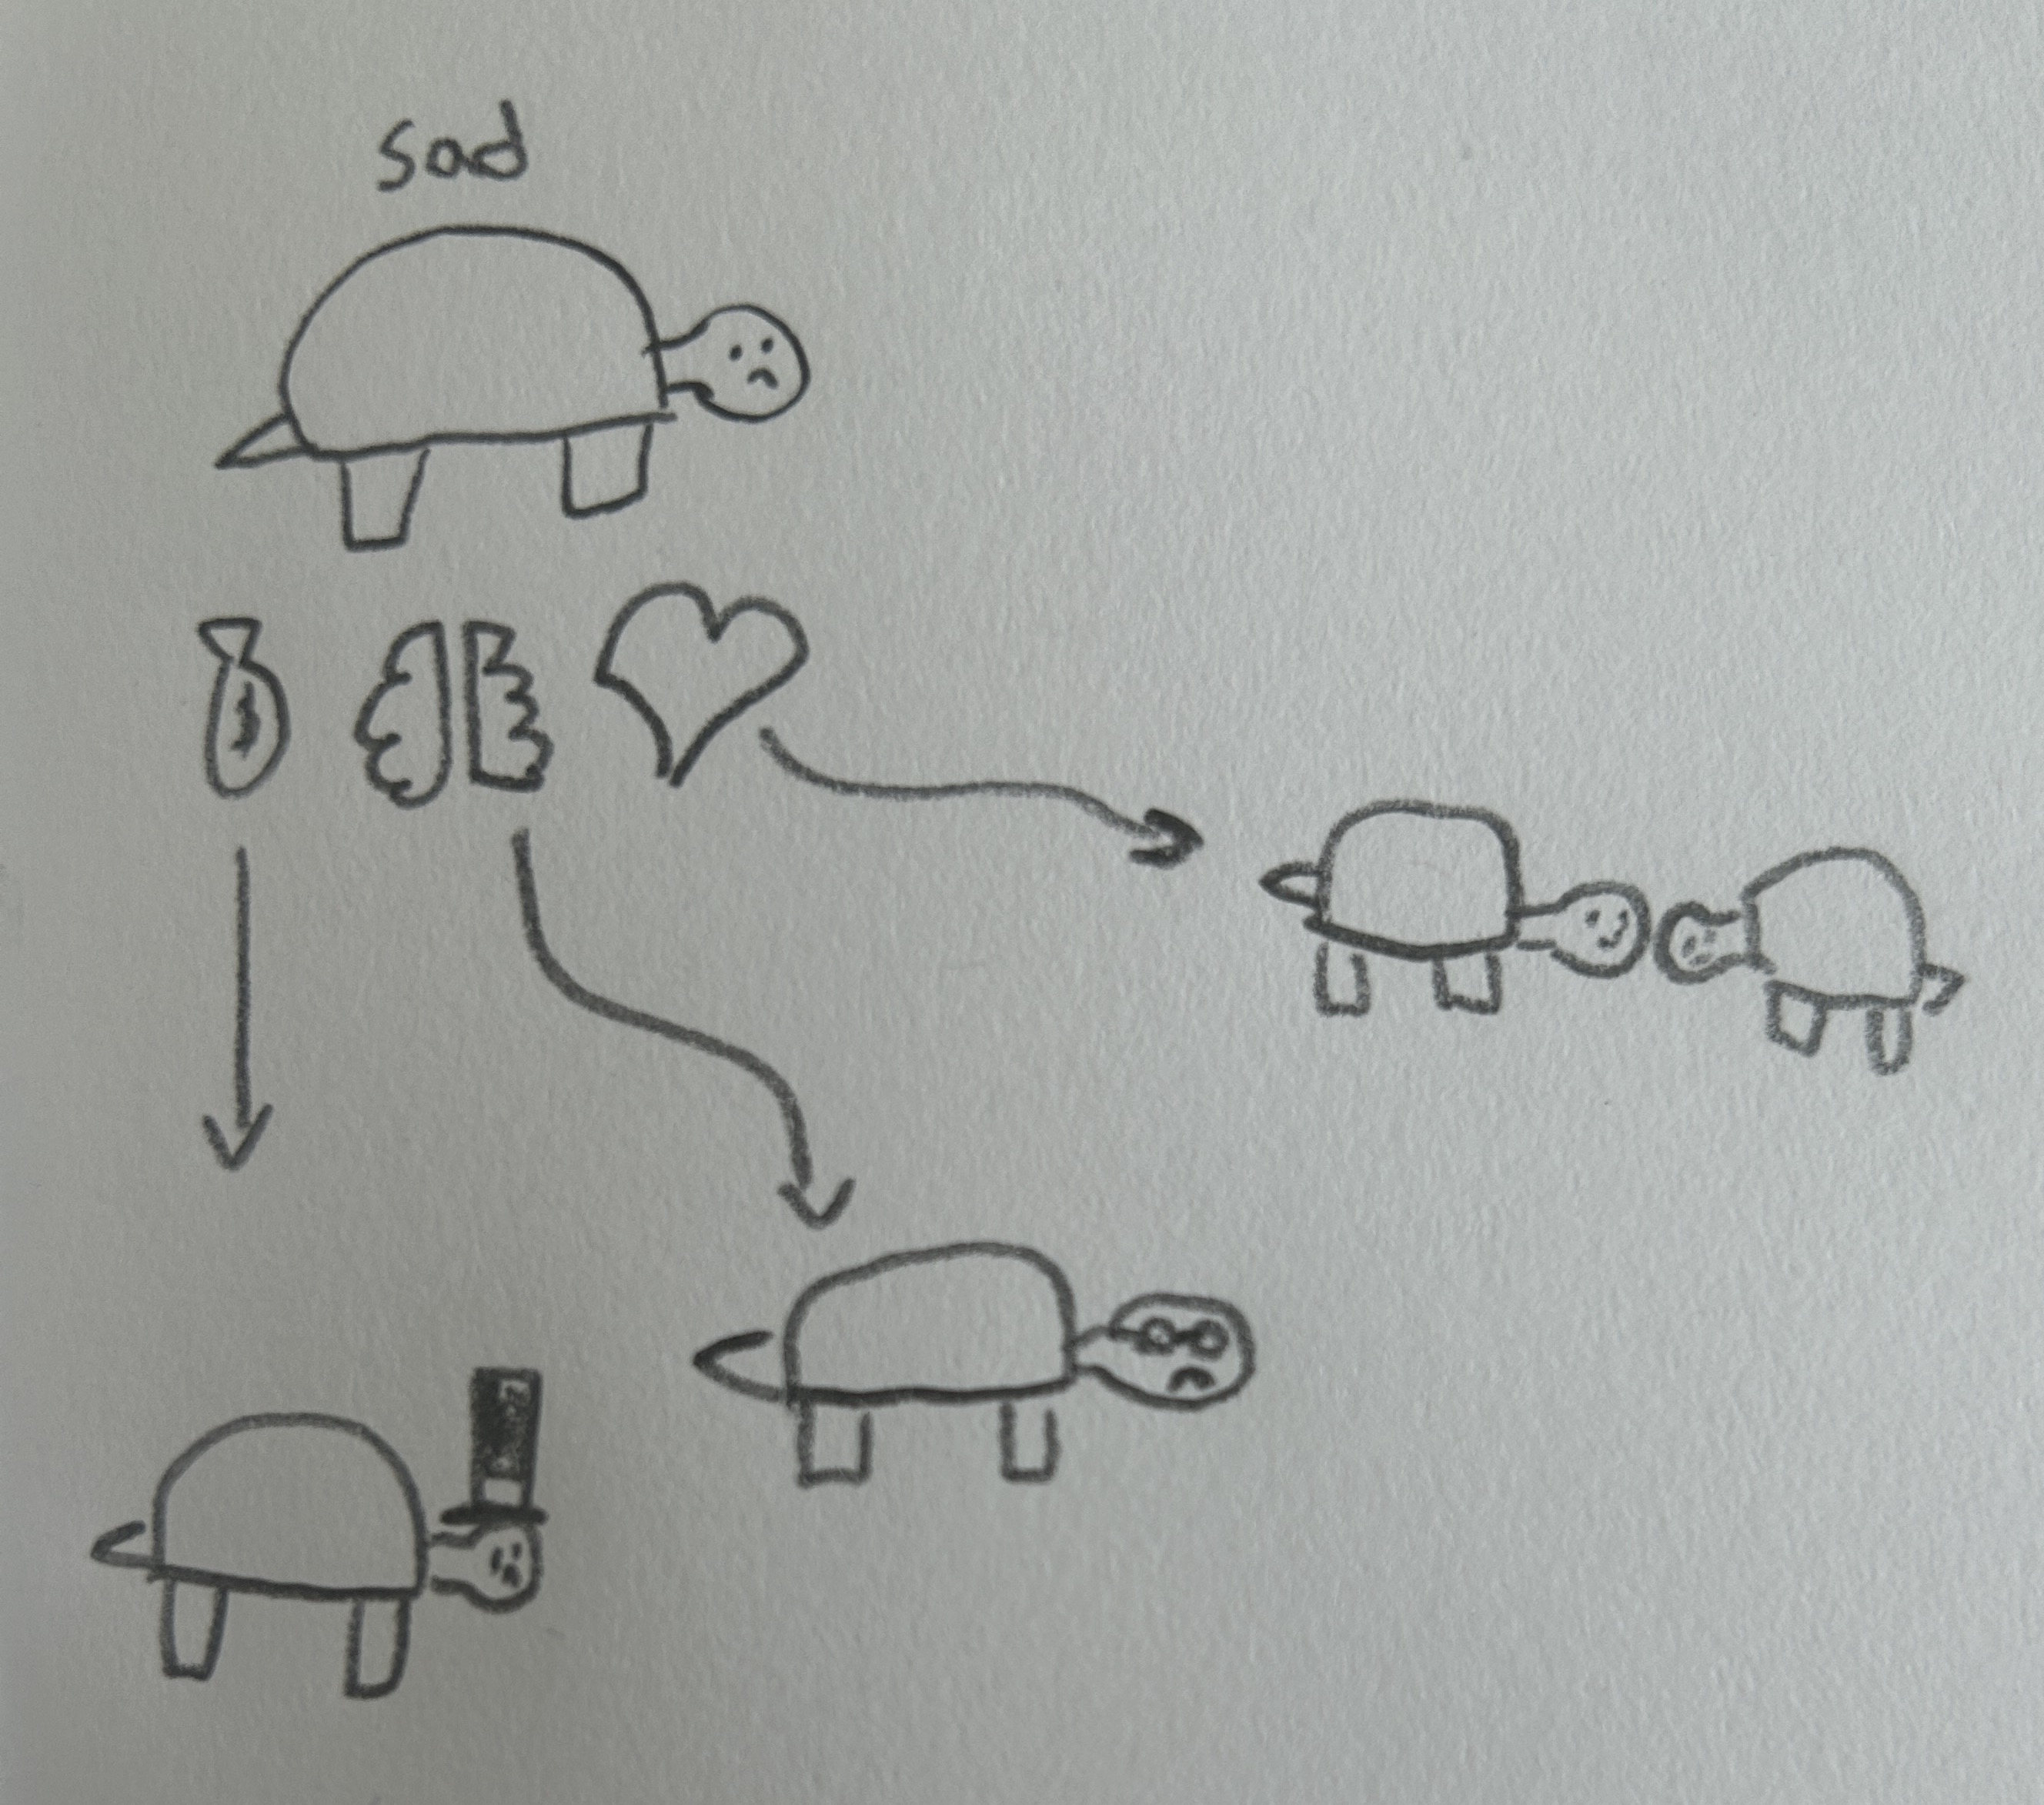 sad
$